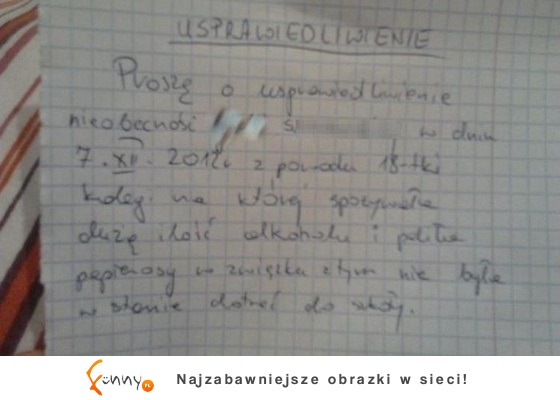 USPRAWIEDLIWIENIE
Proszę o usprawiedliwienie
nieobecność w dniu
7.XII.2012r z powodu 18-tki
kolegi na której spożywała
dużą ilość alkoholu i paliła
papierosy w związku z tym nie była
w stanie dotrzeć do szkoły.
funny.PL
Najzabawniejsze obrazki w sieci!